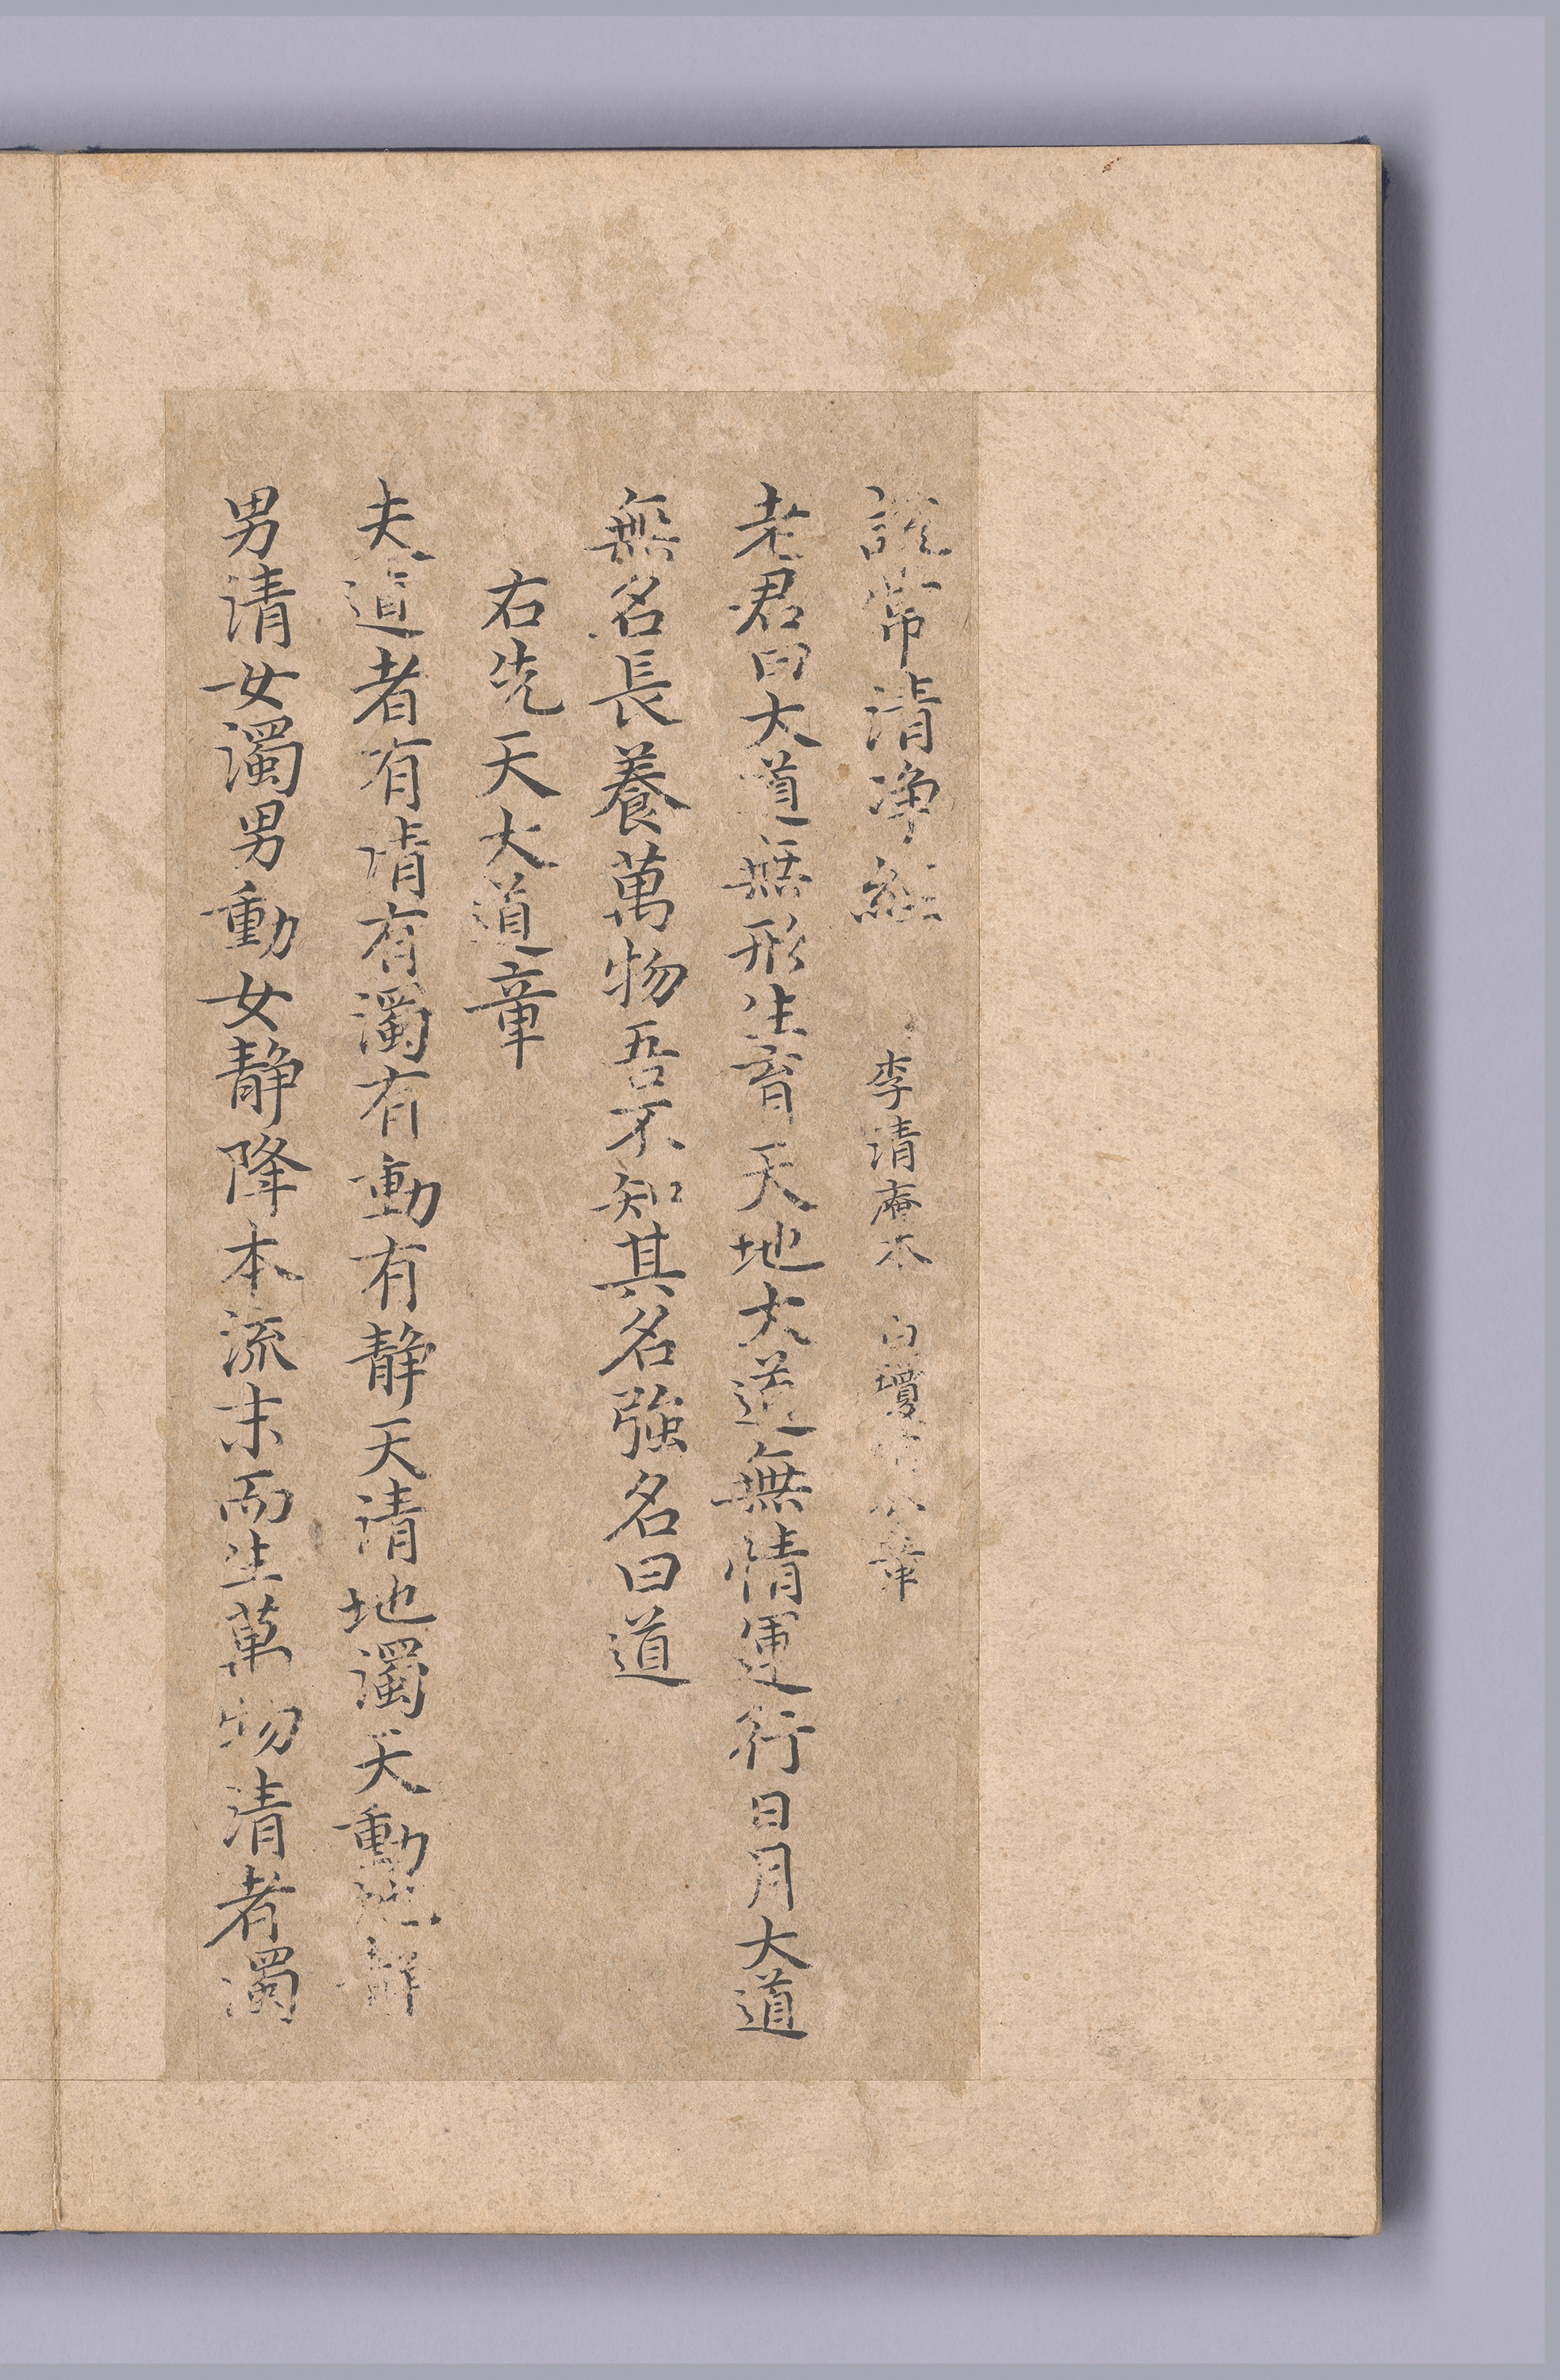 說常清淨經 李清庵本 白瓊琯分章
老君曰大道無形生育天地大道無情運行日月大道
無名長養萬物吾不知其名強名曰道
右先天大道章
夫道者有清有濁有動有靜天清地濁天動地靜
男清女濁男動女靜降本流末而生萬物清者濁